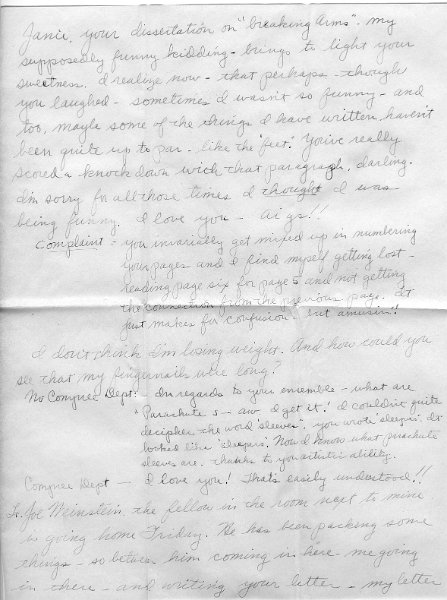 Janie, your dissertation on "breaking arms" - my
supposedly funny kidding - brings to light your
sweetness. I realize now - that perhaps - though
you laughed - sometimes I wasn't so funny - and
too, maybe some of the things I have written, haven't
been quite up to par - like the feet. You've really
scored a knockdown with that paragraph, darling.
I'm sorry for all those times I thought I was
being funny. I love you -
Complaint - you invariably get mixed up in numbering
your pages and I find myself getting lost -
reading page six for page 5 and not getting
the connection from the previous page. It
just makes for confusion - but amusin!
I don't think I'm losing weight. And how could you
see that my fingernails were long?
No Compree Dept: In regards to your ensemble - what are
"Parachute s - aw I get it! I couldn't quite
decipher the word "sleeves". you wrote "sleepis". It
looked like "sleepis". Now I know what parachute
sleeves are. thanks to your artistic ability.
Compree Dept - I love you! That's easily understood!!
Lt. Joe Weinstein the fellow in the room next to mine
is going home Friday. He has been packing some
things - so between him coming in here - me going
in there - and writing your letter - my letter